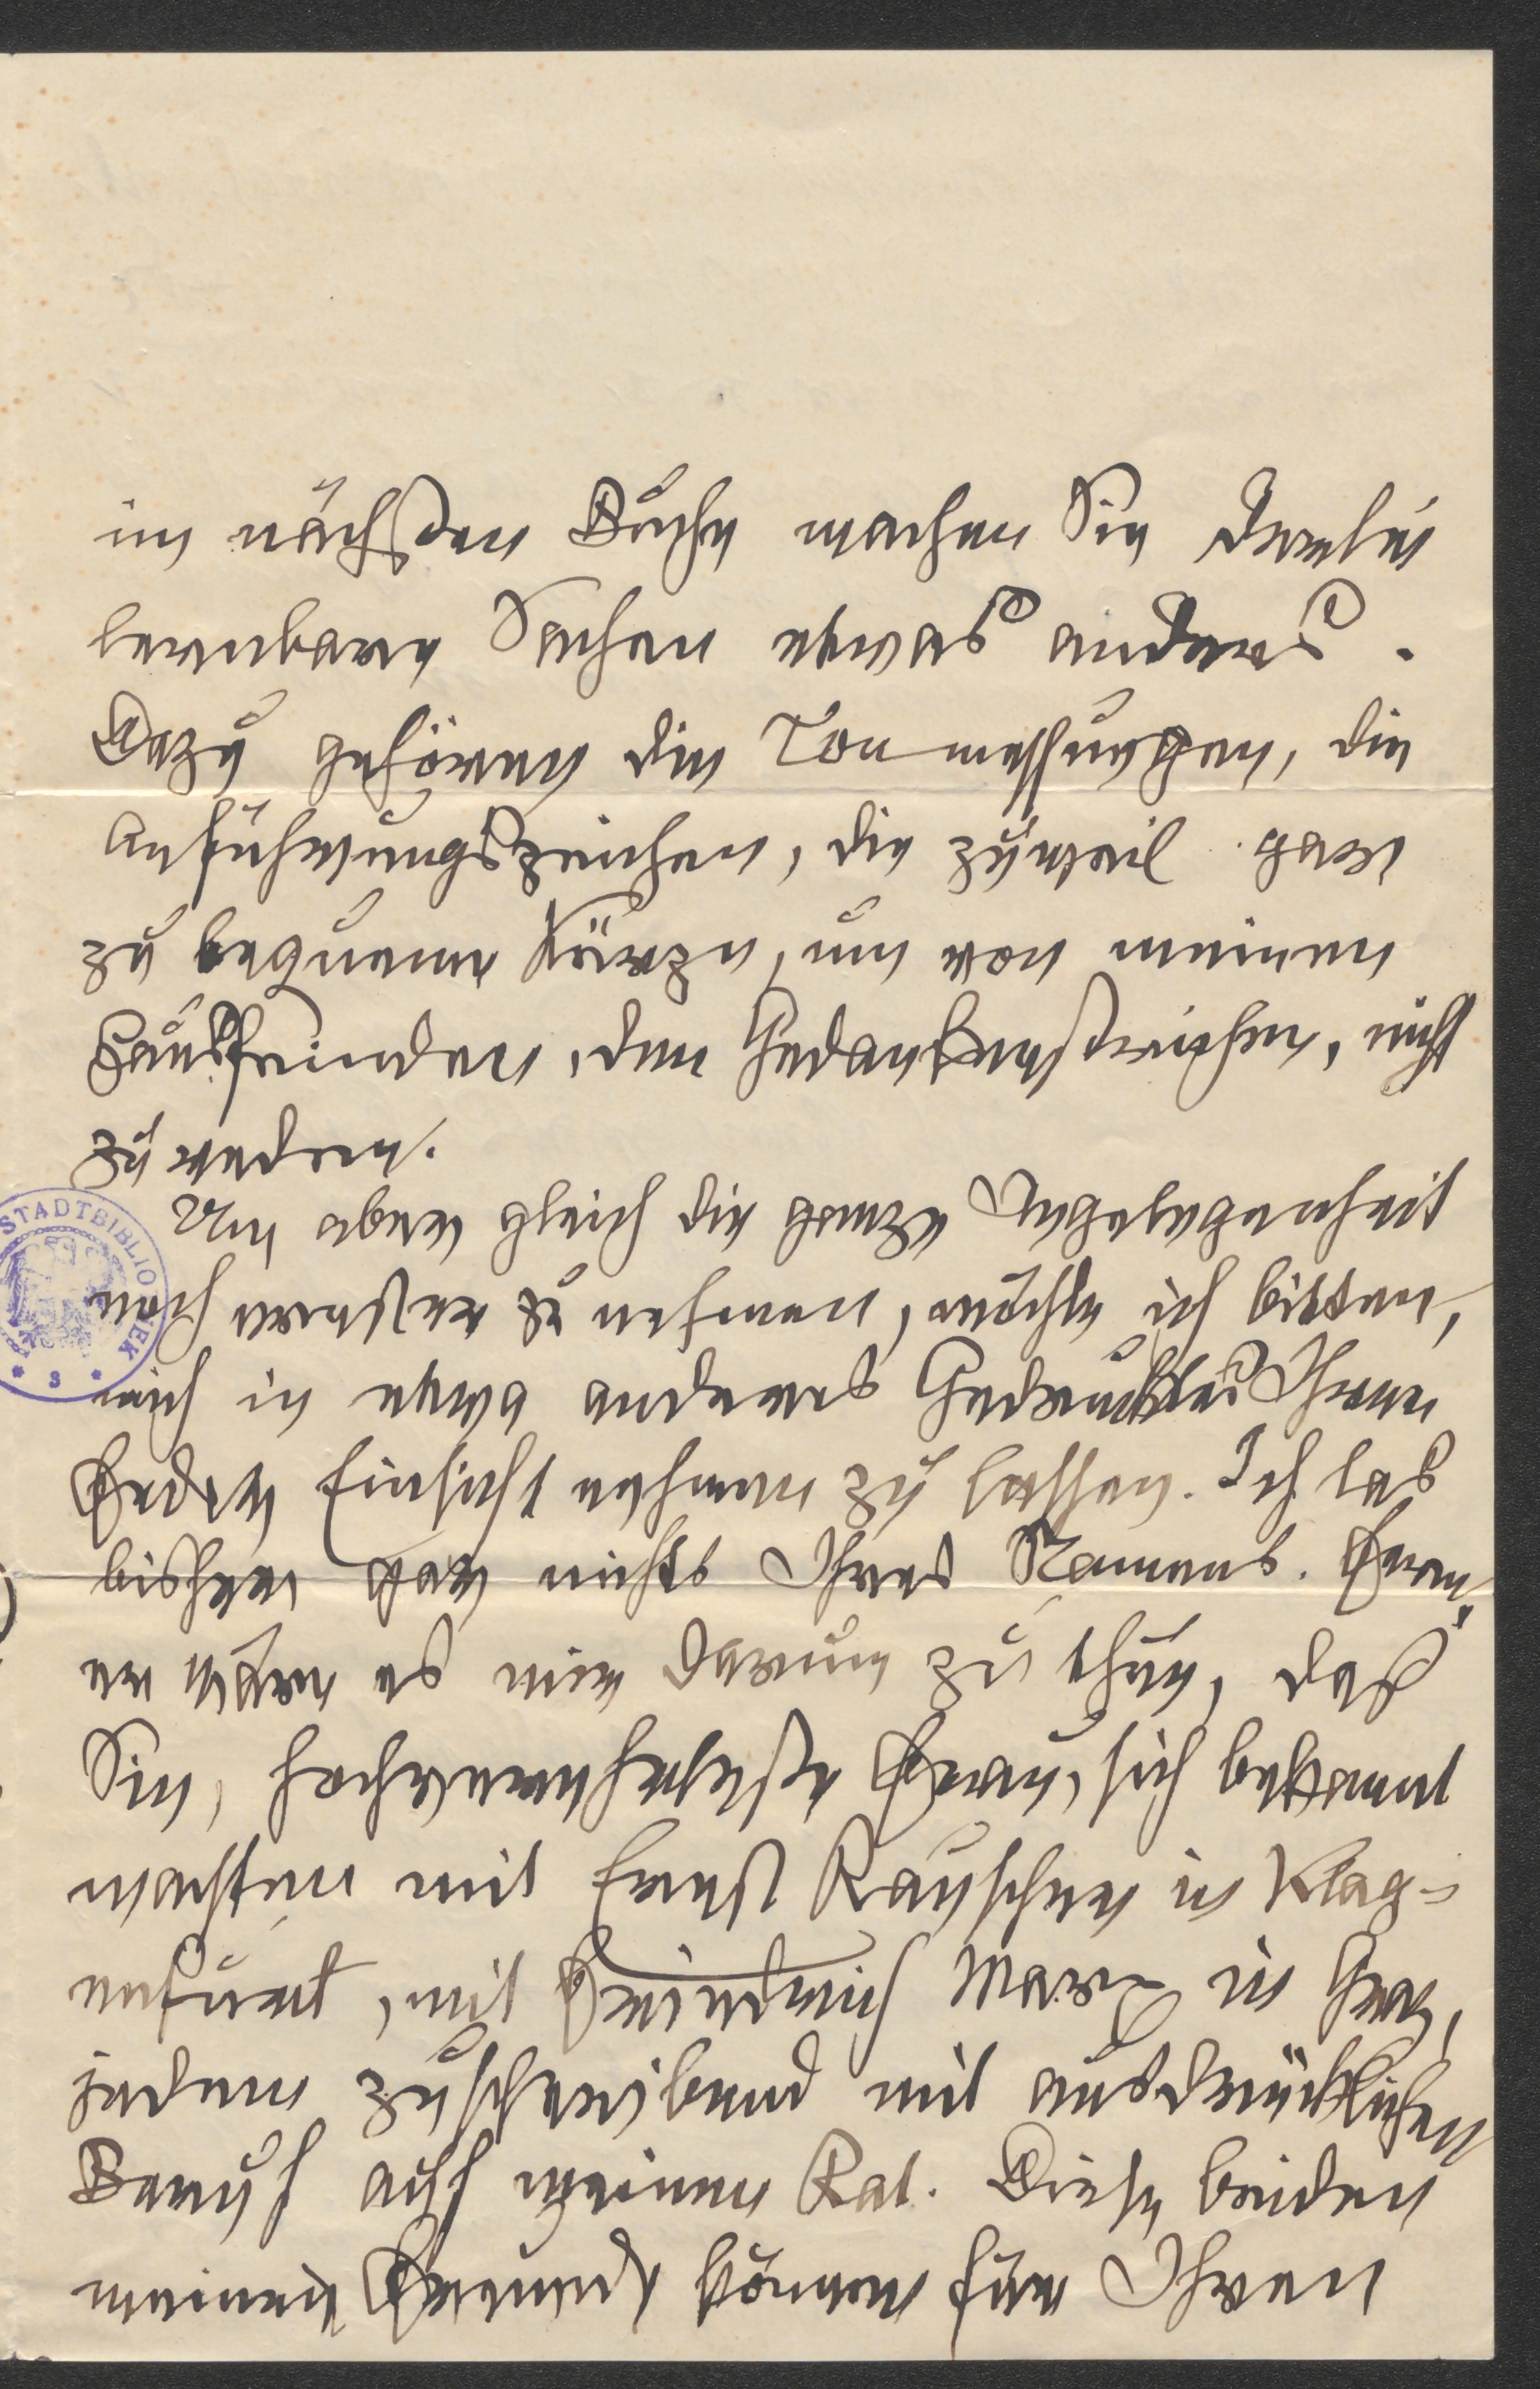 im nächsten Buche machen Sie derlei
Sachen etwas anders.
Dazu gehören die Tonmessungen, die
Anführungszeichen, die zumeist ganz
zu bequeme Kürze, um von meinen
Hausfeinden, den Gedankenstrichen, nicht
zu reden.
Um aber gleich die ganze Angelegenheit
zu nehmen, möchte ich bitten,
mich in etwas anderes Gedruckte Ihrer
Feder Einsicht nehmen zu lassen. Ich las
bisher noch nichts Ihres Namens. Ferner
wäre es mir darum zu thun, daß
Sie, hochverehrtester Herr, sich bekannt
machten mit Ernst Rauscher in Klag-
enfurt, mit Friedrich Marx in Graz,
jedem zuschreibend mit ausdrücklichem
Beruf auf meinen Rat. Diese beiden
meiner Freunde können für Ihren
STADTBIBLIOTHEK